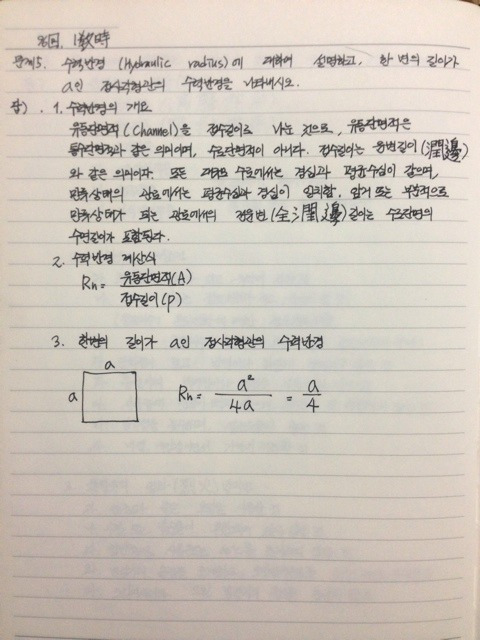 8회. 1교시
문제5. 수력반경 (Hydraulic radius)에 대하여 설명하고, 한 변의 길이가
a인 정사각형관의 수력반경을 나타내시오.
답). 1. 수력반경의 개요
유동단면적(Channel)을 접수길이로 나눈 것으로, 유동단면적은
통수단면적과 같은 의미이며, 수로단면적이 아니다. 접수길이는 윤변길이(潤邊)
와 같은 의미이다. 또는 경심과 평균수심이 같으며,
만류상태의 관로에서는 평균수심과 경심이 일치함. 암거 또는 부분적으로
만류상태가 되는 관로에서의 전윤변(全潤邊)길이는 수로단면의
수면길이가 포함된다.
2. 수력반경 계산식
Rh = 유동단면적(A) / 접수길이(P)
3. 한변의 길이가 a인 정사각형관의 수력반경
a
a
Rh = a² / 4a = a / 4